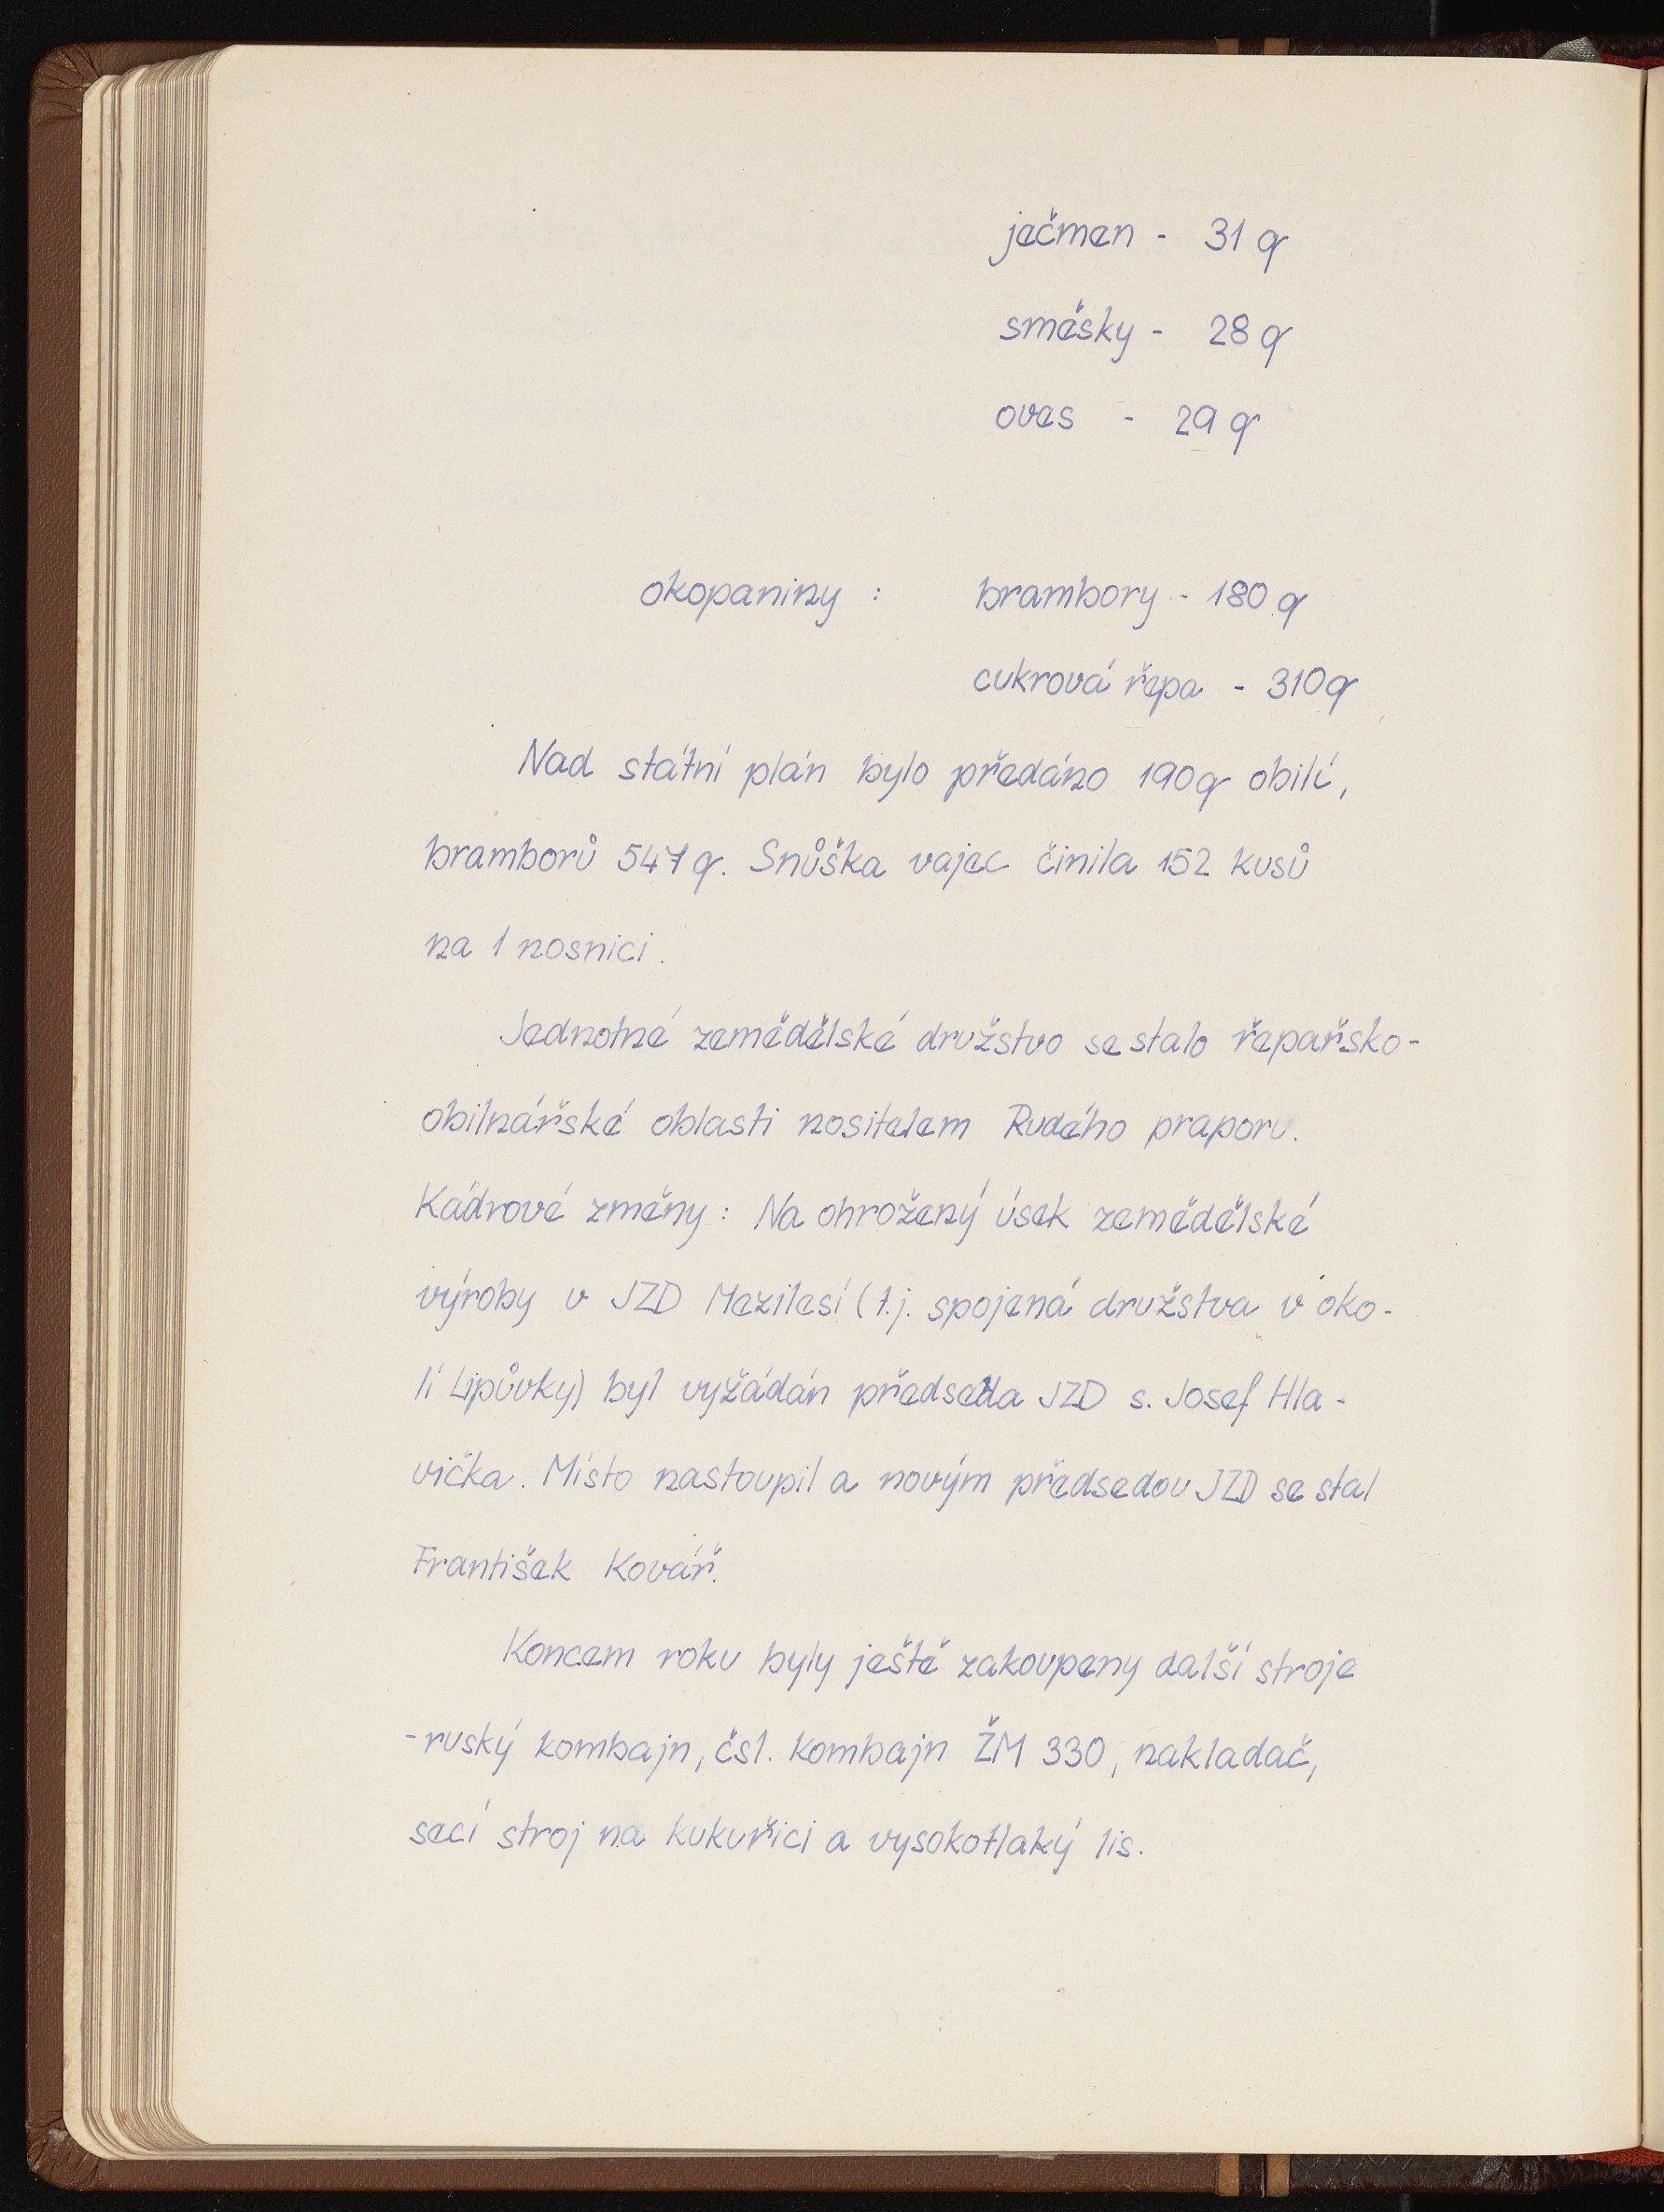 ječmen - 31 q
směsky - 28 q
oves - 29 q
okopaniny : brambory - 180 q
cukrová řepa - 310 q
Nad státní plán bylo předáno 190 q obilí,
bramborů 547 q. Snůška vajec činila 152 kusů
na 1 nosnici.
Jednotné zemědělské družstvo se stalo řepařsko-
obilnářské oblasti nositelem Rudého praporu.
Kádrové změny : Na ohrožený úsek zemědělské
výroby v JZD Mezilesí (t.j. spojená družstva v oko-
lí Lipůvky) byl vyžádán předseda JZD s. Josef Hla-
vička. Místo nastoupil a novým předsedou JZD se stal
František Kovář.
Koncem roku byly ještě zakoupeny další stroje
-ruský kombajn, čsl. kombajn ŽM 330, nakladač,
secí stroj na kukuřici a vysokotlaký lis.